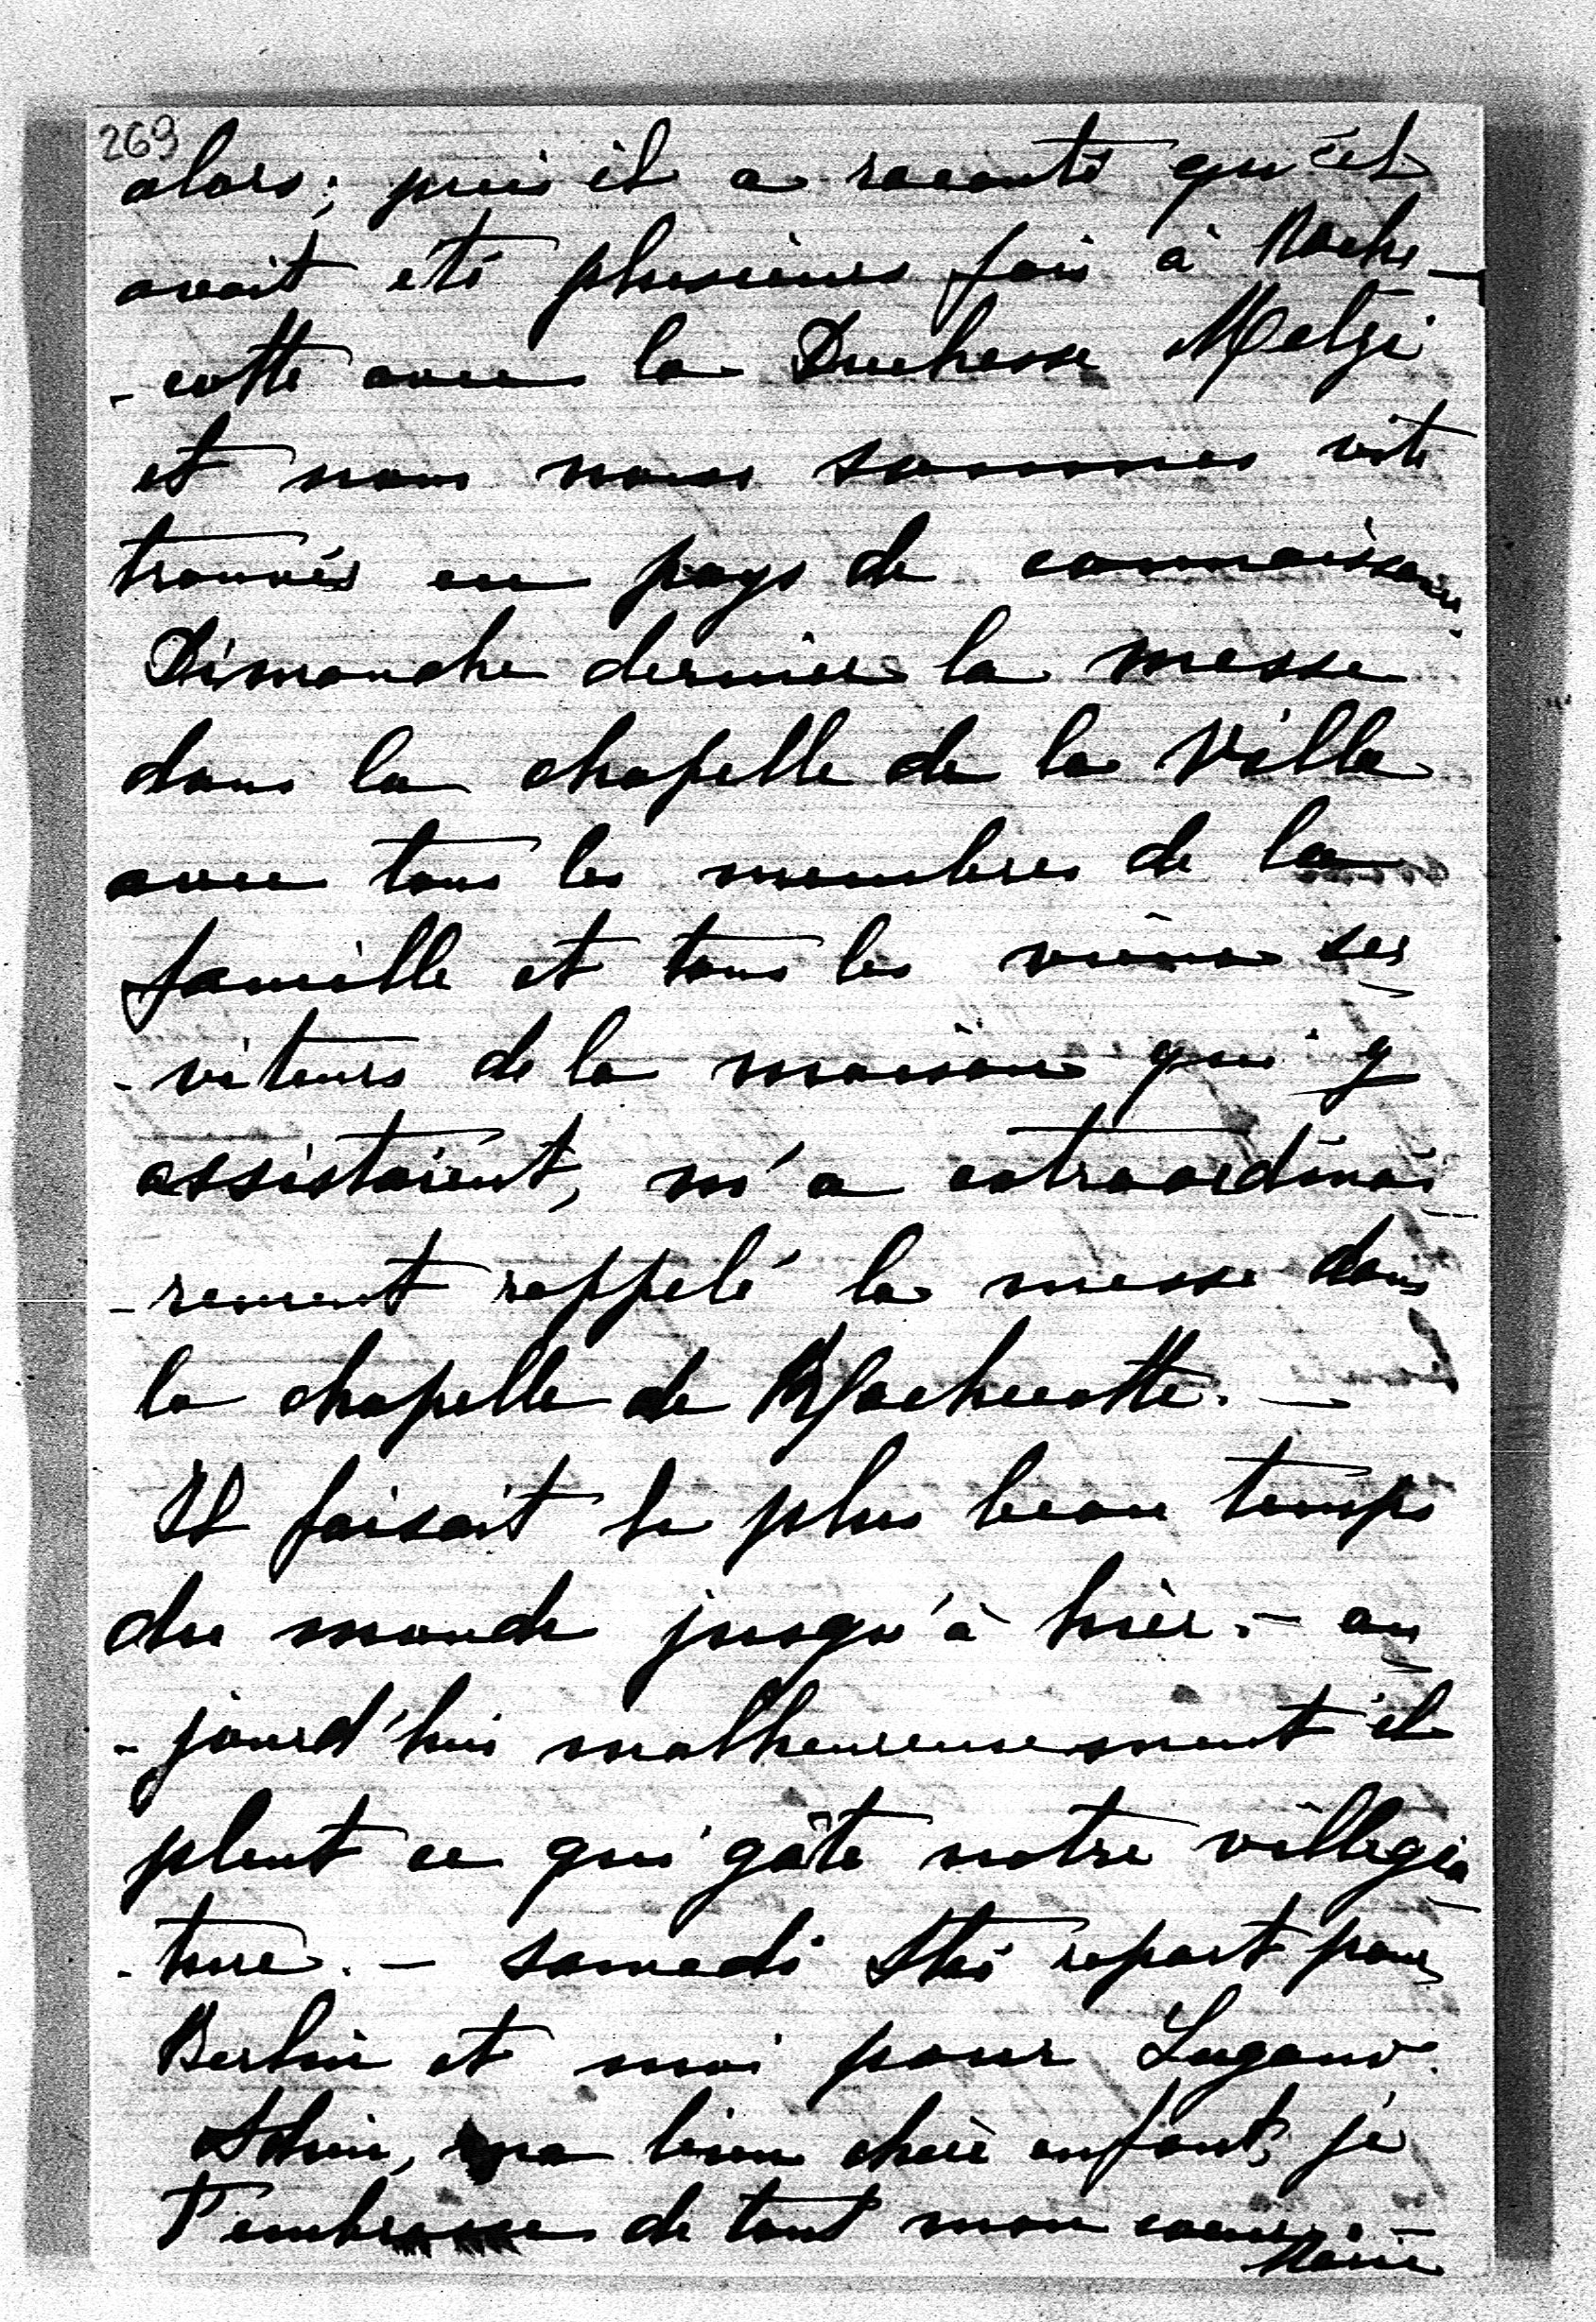 269
alors ; puis il a raconté qu'il
avait été plusieurs fois à Roche-
-cotte avec la Duchesse Melzi
et nous nous sommes vite
trouvés en pays de connaissance.
Dimanche dernier la messe
dans la chapelle de la Villa
avec tous les membres de la
famille et tous les vieux ser-
-viteurs de la maison qui y
assistaient, m'a extraordinai-
-rement rappelé la messe dans
la chapelle de Rochecotte. —
Il faisait le plus beau temps
du monde jusqu'à hier. — au-
-jourd'hui malheureusement il
pleut ce qui gâte notre villégia-
-ture. — Samedi repart pour
Berlin et moi pour Lugano.
Adieu, ma bien chère enfant, je
t'embrasse de tout mon coeur. —